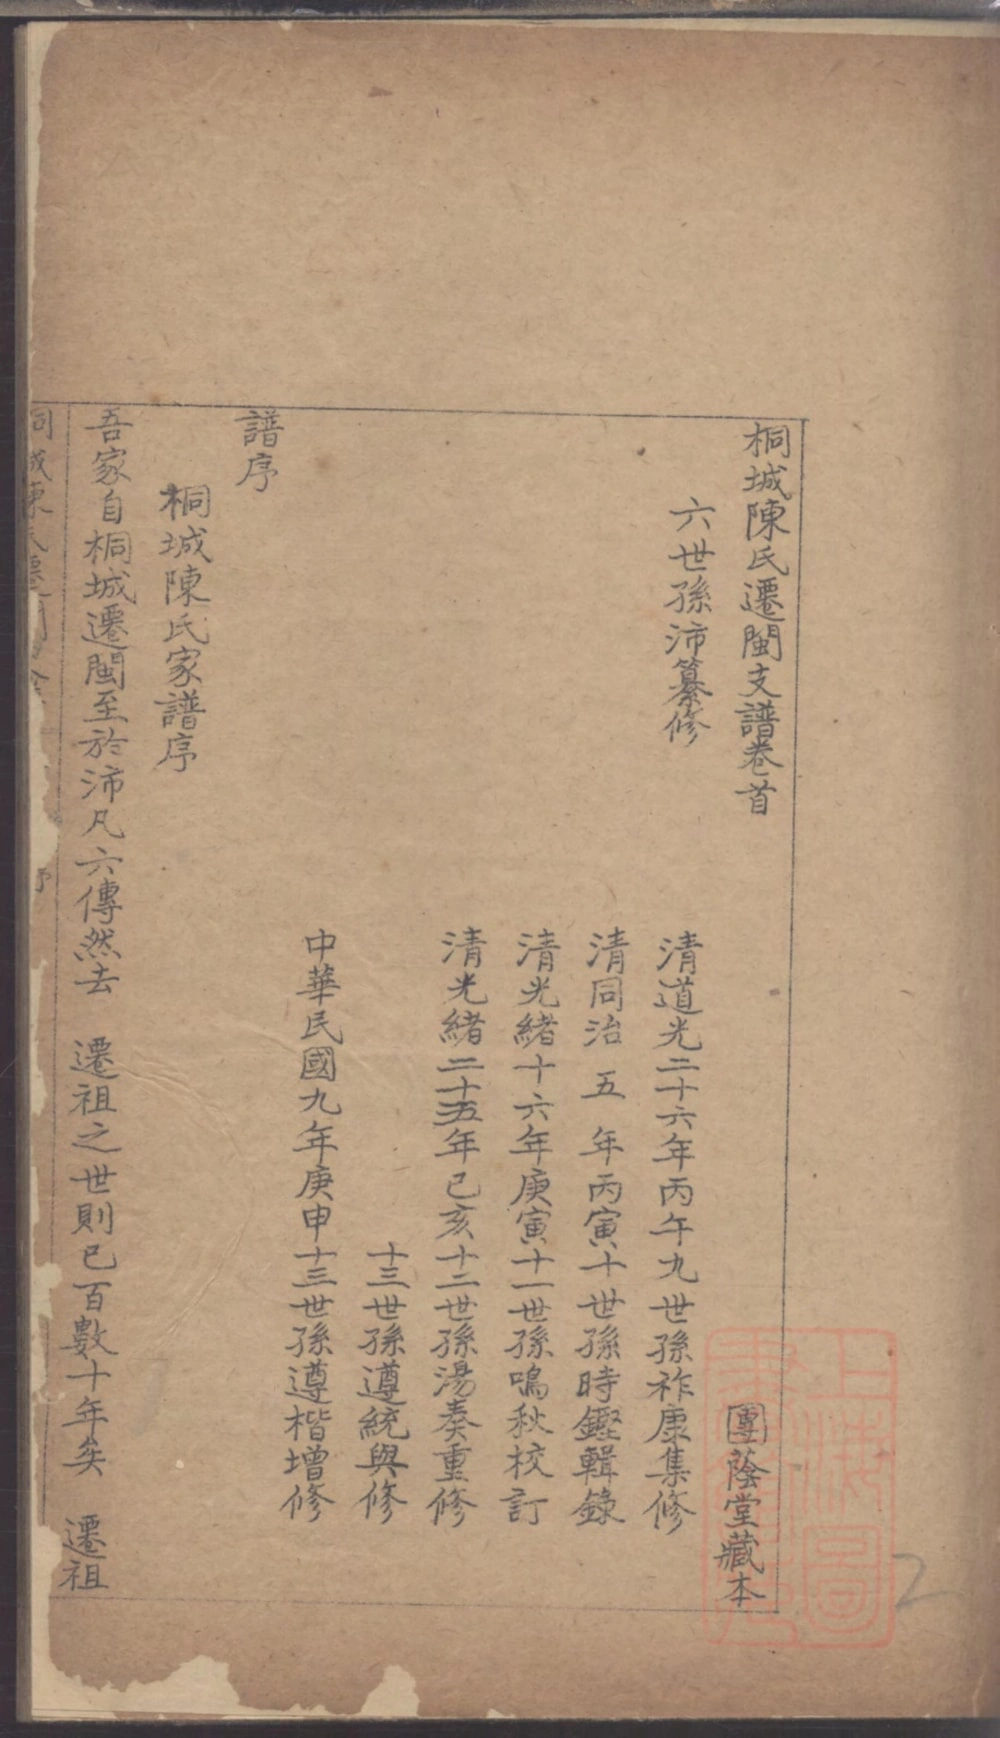 桐城陳氏遷閩支譜卷首
團蔭堂藏本
六世孫沛纂修
清道光二十六年丙午九世孫祚康集修
清同治五年丙寅十世孫時鏗輯錄
清光緒十六年庚寅十一世孫鳴秋校訂
清光緒二十五年己亥十二世孫湯奏重修
十三世孫遵統與修
中華民國九年庚申十三世孫遵楷增修
譜序
桐城陳氏家譜序
吾家自桐城遷閩至於沛凡六傳然去 遷祖之世則已百數十年矣 遷祖
2